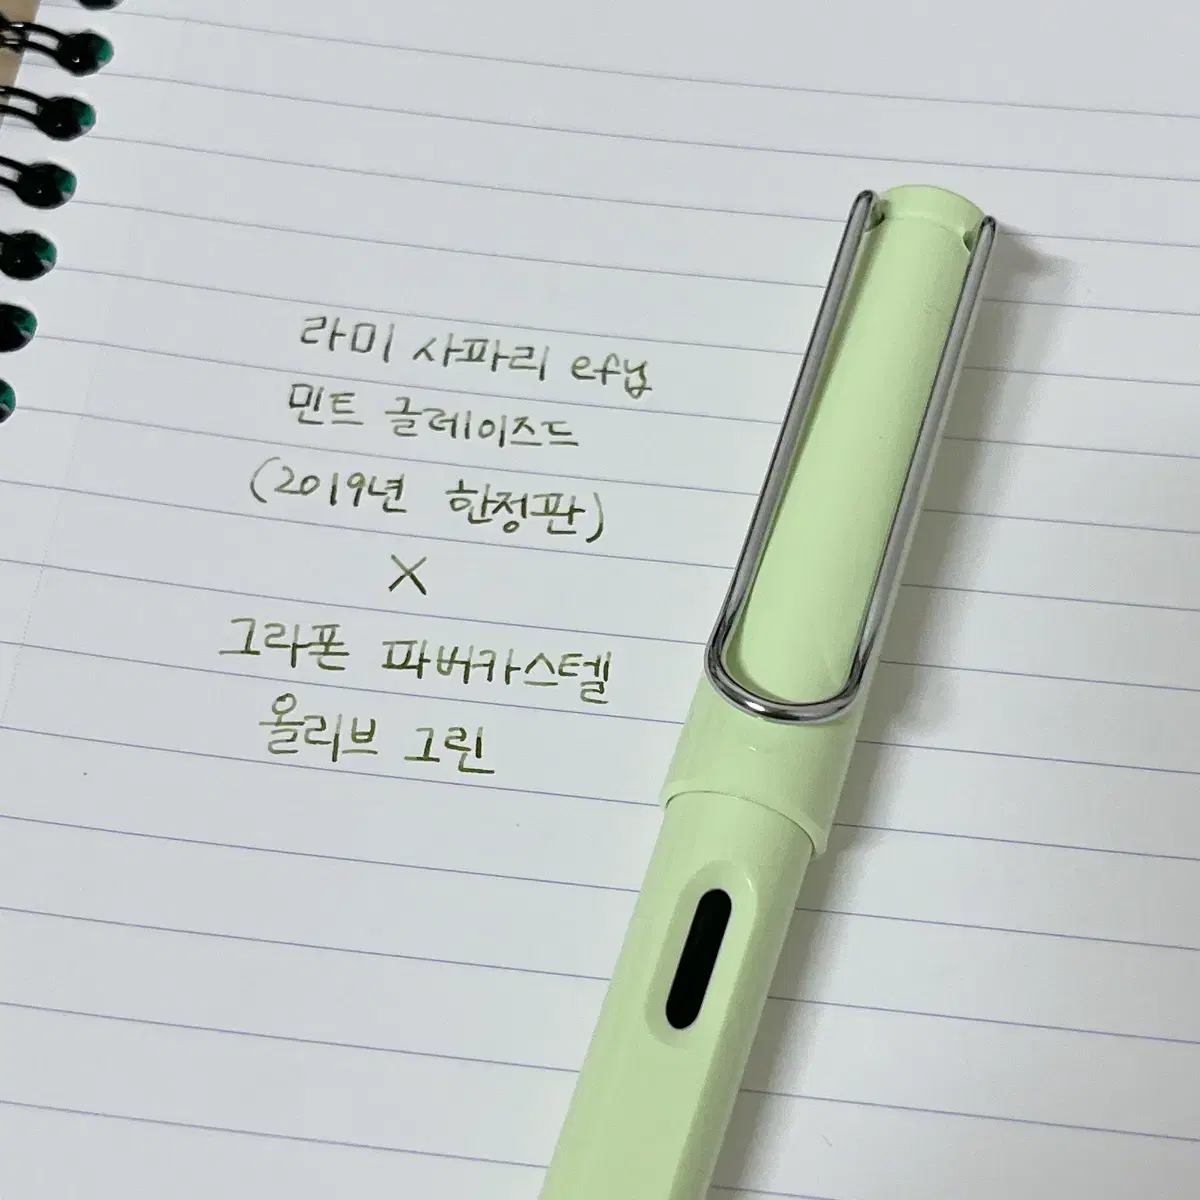 라미 사파리 ef닙
민트 글레이즈드
(2019년 한정판)
X
그라폰 파버카스텔
올리브 그린